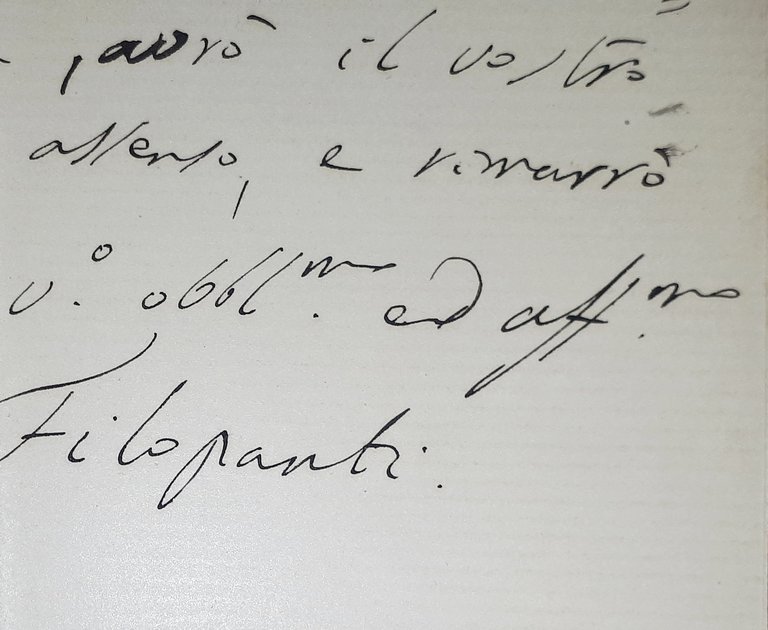 , avrò il vostro
assenso, e rimarrò
v.° obbl.mo ed aff.mo
Filopanti.